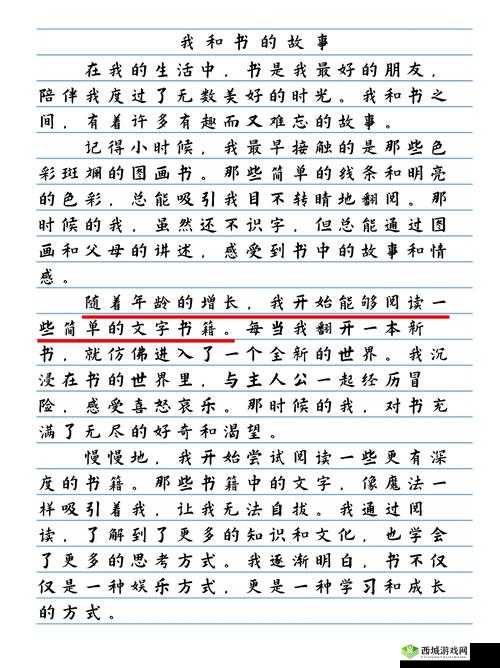 我和书的故事
在我的生活中，书是我最好的朋友，
陪伴我度过了无数美好的时光。我和书之
间，有着许多有趣而又难忘的故事。
记得小时候，我最早接触的是那些色
彩斑斓的图画书。那些简单的线条和明亮
的色彩，总能吸引我目不转睛地翻阅。那
时候的我，虽然还不识字，但总能通过图
画和父母的讲述，感受到书中的故事和情
感。
随着年龄的增长，我开始能够阅读一
些简单的文字书籍。每当我翻开一本新
书，就仿佛进入了一个全新的世界。我沉
浸在书的世界里，与主人公一起经历冒
险，感受喜怒哀乐。那时候的我，对书充
满了无尽的好奇和渴望。
慢慢地，我开始尝试阅读一些更有深
度的书籍。那些书籍中的文字，像魔法一
样吸引着我，让我无法自拔。我通过阅
读，了解到了更多的知识和文化，也学会
了更多的思考方式。我逐渐明白，书不仅
仅是一种娱乐方式，更是一种学习和成长
的方式。
西城游戏网